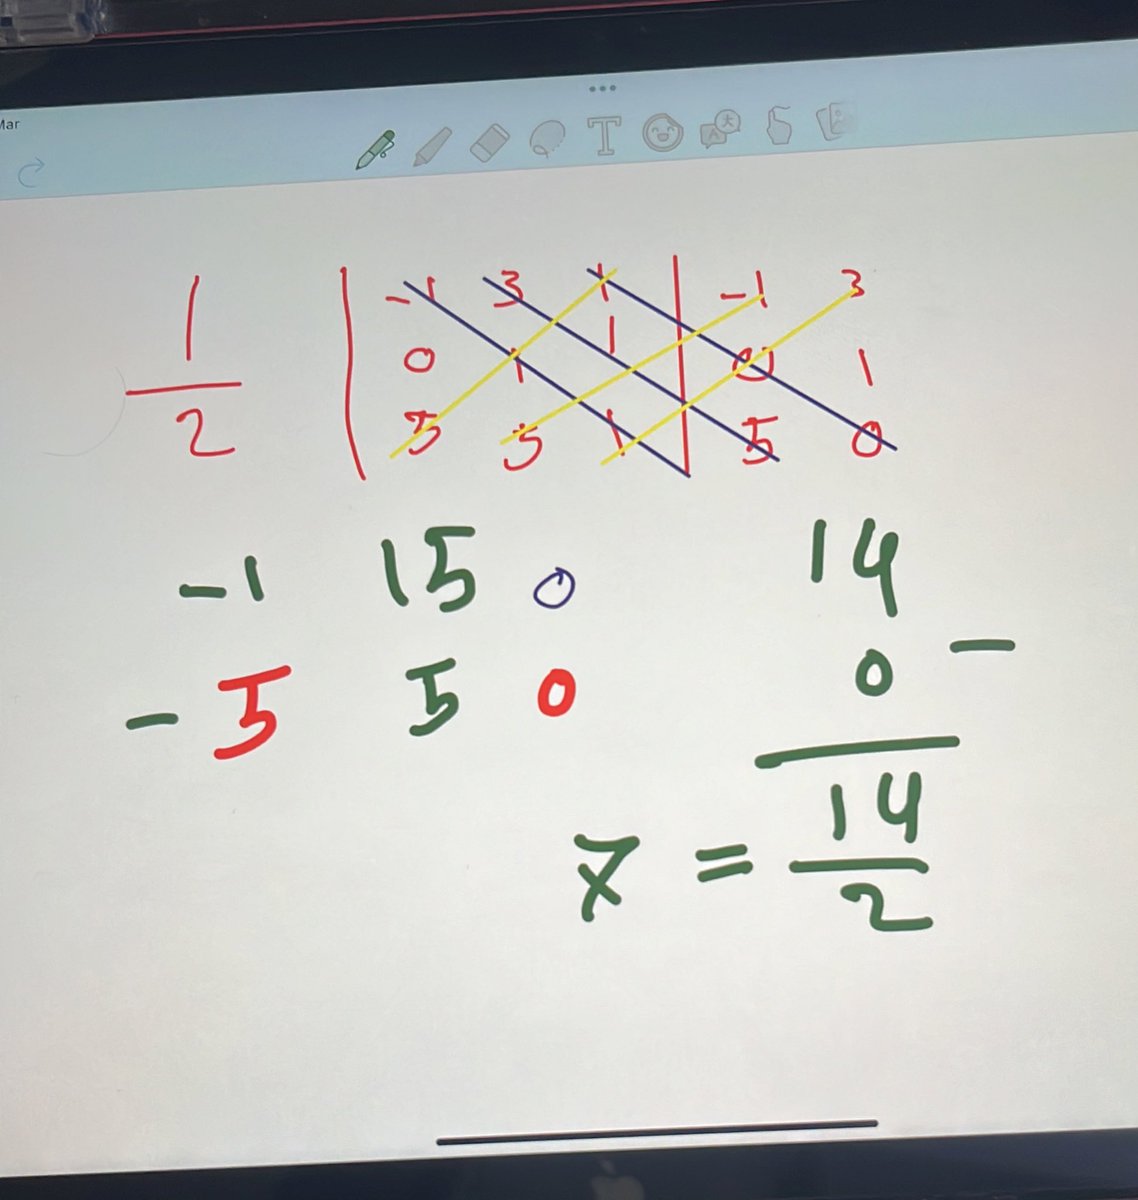 Mar
T
1 | -1 3 1 | -1 3
— 0 1 1 0 1
2 | 5 5 1 | 5 0
-1 15 0 14
- 5 5 0 0 -
7 = 14
2